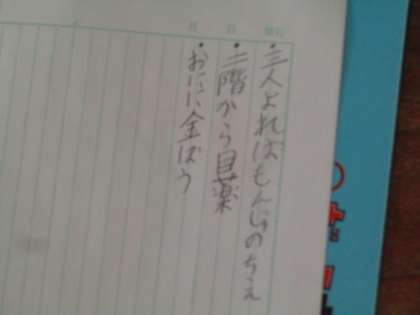 月 日 曜日
・三人よればもんじゅのちえ
・二階から目薬
・おにに金ぼう